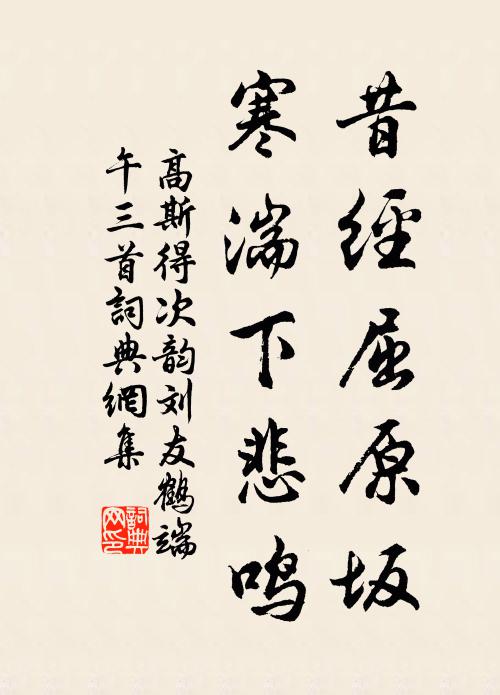 昔經屈原坂
寒湍下悲鸣
高斯得次韵刘友鶴端
午三首詞典網集
詞典
网印